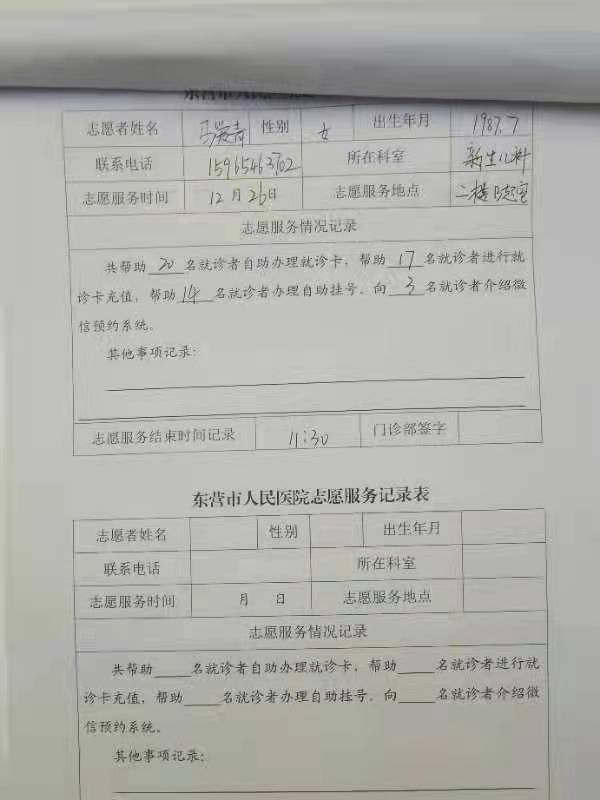 东营市人民
志愿者姓名 马爱青 性别 女 出生年月 1987.7
联系电话 15965463702 所在科室 新生儿科
志愿服务时间 12月26日 志愿服务地点 二楼
志愿服务情况记录
共帮助20名就诊者自助办理就诊卡，帮助17名就诊者进行就
诊卡充值，帮助14名就诊者办理自助挂号、向3名就诊者介绍微
信预约系统。
其他事项记录：
志愿服务结束时间记录 11:30 门诊部签字
东营市人民医院志愿服务记录表
志愿者姓名 性别 出生年月
联系电话 所在科室
志愿服务时间 月 日 志愿服务地点
志愿服务情况记录
共帮助____名就诊者自助办理就诊卡，帮助____名就诊者进行就
诊卡充值，帮助____名就诊者办理自助挂号、向____名就诊者介绍微
信预约系统。
其他事项记录：